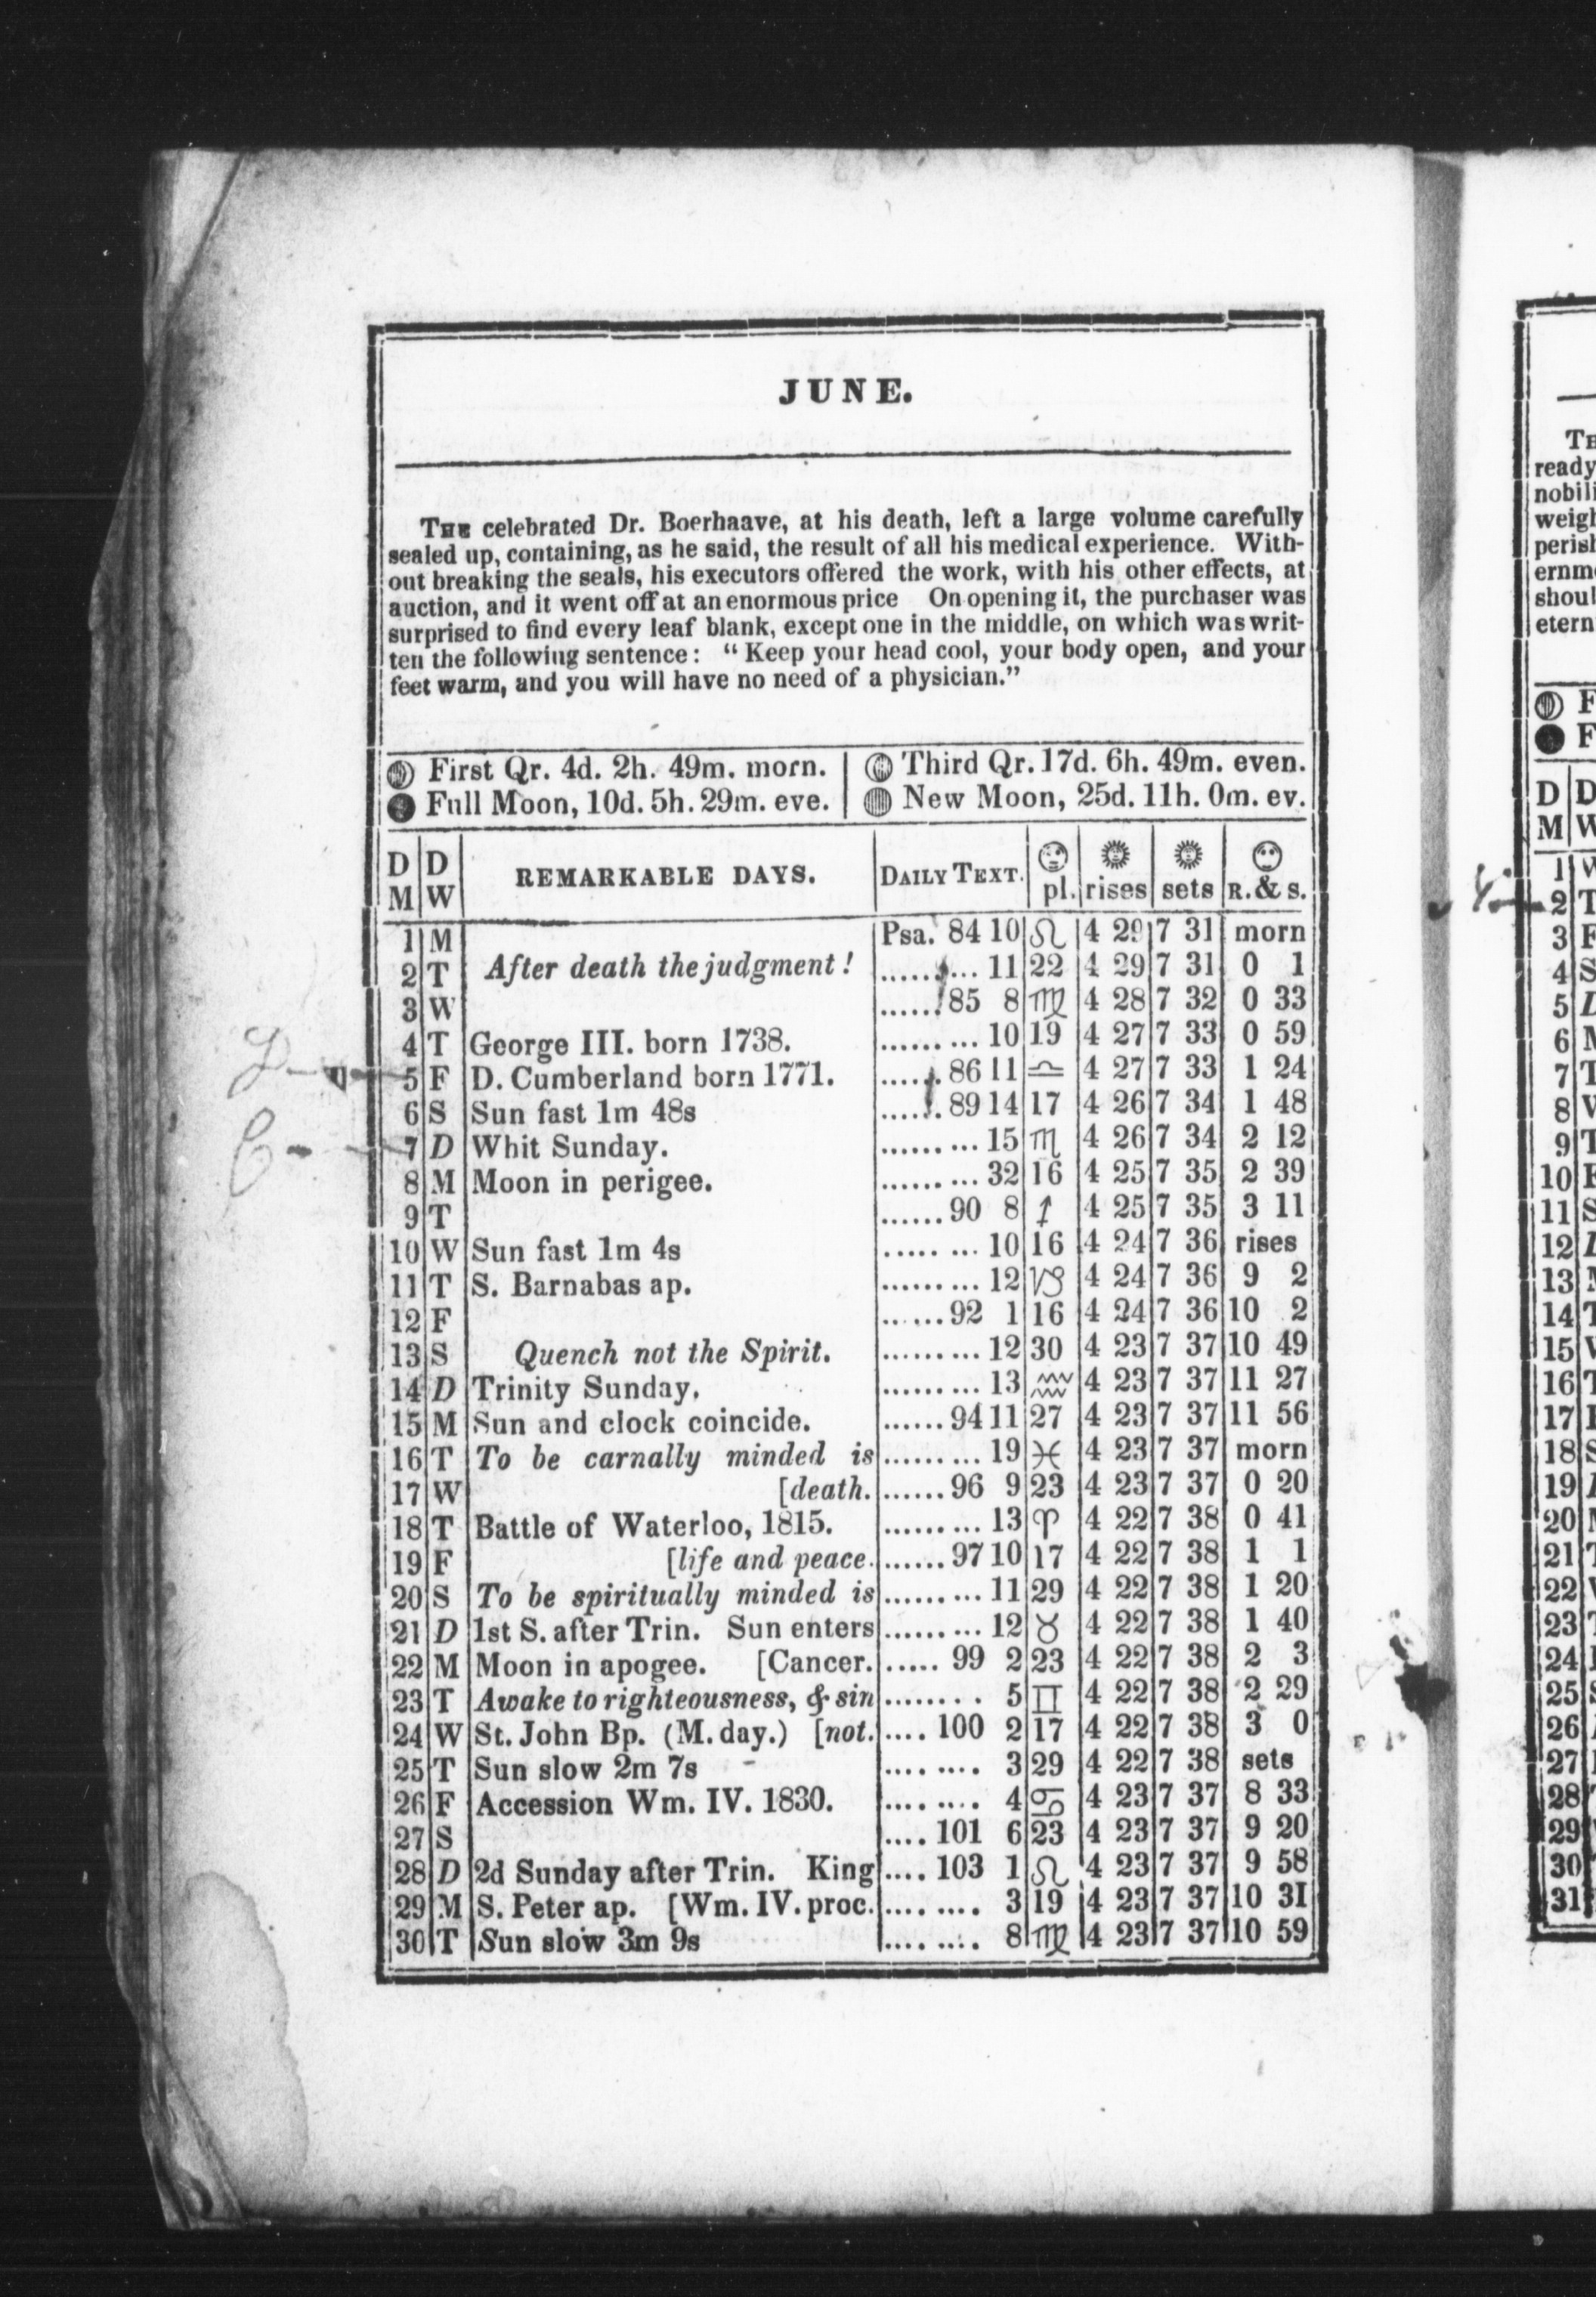 JUNE.
THE celebrated Dr. Boerhaave, at his death, left a large volume carefully
sealed up, containing, as he said, the result of all his medical experience. With-
out breaking the seals, his executors offered the work, with his other effects, at
auction, and it went off at an enormous price On opening it, the purchaser was
surprised to find every leaf blank, except one in the middle, on which was writ-
ten the following sentence: "Keep your head cool, your body open, and your
feet warm, and you will have no need of a physician."
First Qr. 4d. 2h. 49m. morn. Third Qr. 17d. 6h. 49m. even.
Full Moon, 10d. 5h. 29m. eve. New Moon, 25d. 11h. 0m. ev.
D M D W REMARKABLE DAYS. DAILY TEXT. pl. rises sets R. & s.
1 M Psa. 84 10 ♌ 4 29 7 31 morn
2 T After death the judgment! ......... 11 22 4 29 7 31 0 1
3 W ......85 8 ♍ 4 28 7 32 0 33
4 T George III. born 1738. ......... 10 19 4 27 7 33 0 59
5 F D. Cumberland born 1771. ......86 11 ♎ 4 27 7 33 1 24
6 S Sun fast 1m 48s ......89 14 17 4 26 7 34 1 48
7 D Whit Sunday. ......... 15 ♏ 4 26 7 34 2 12
8 M Moon in perigee. ......... 32 16 4 25 7 35 2 39
9 T ......90 8 ♐ 4 25 7 35 3 11
10 W Sun fast 1m 4s ......... 10 16 4 24 7 36 rises
11 T S. Barnabas ap. ......... 12 ♑ 4 24 7 36 9 2
12 F ......92 1 16 4 24 7 36 10 2
13 S Quench not the Spirit. ......... 12 30 4 23 7 37 10 49
14 D Trinity Sunday. ......... 13 ♒ 4 23 7 37 11 27
15 M Sun and clock coincide. ......94 11 27 4 23 7 37 11 56
16 T To be carnally minded is ......... 19 ♓ 4 23 7 37 morn
17 W [death. ......96 9 23 4 23 7 37 0 20
18 T Battle of Waterloo, 1815. ......... 13 ♈ 4 22 7 38 0 41
19 F [life and peace. ......97 10 17 4 22 7 38 1 1
20 S To be spiritually minded is ......... 11 29 4 22 7 38 1 20
21 D 1st S. after Trin. Sun enters ......... 12 ♉ 4 22 7 38 1 40
22 M Moon in apogee. [Cancer. ..... 99 2 23 4 22 7 38 2 3
23 T Awake to righteousness, & sin ........ 5 ♊ 4 22 7 38 2 29
24 W St. John Bp. (M. day.) [not. .... 100 2 17 4 22 7 38 3 0
25 T Sun slow 2m 7s ........ 3 29 4 22 7 38 sets
26 F Accession Wm. IV. 1830. ........ 4 ♋ 4 23 7 37 8 33
27 S .... 101 6 23 4 23 7 37 9 20
28 D 2d Sunday after Trin. King .... 103 1 ♌ 4 23 7 37 9 58
29 M S. Peter ap. [Wm. IV. proc. ........ 3 19 4 23 7 37 10 31
30 T Sun slow 3m 9s ........ 8 ♍ 4 23 7 37 10 59
ready
D
M
1
2
3
4
5
6
7
8
9
10
11
12
13
14
15
16
17
18
19
20
21
22
23
24
25
26
27
28
29
30
31